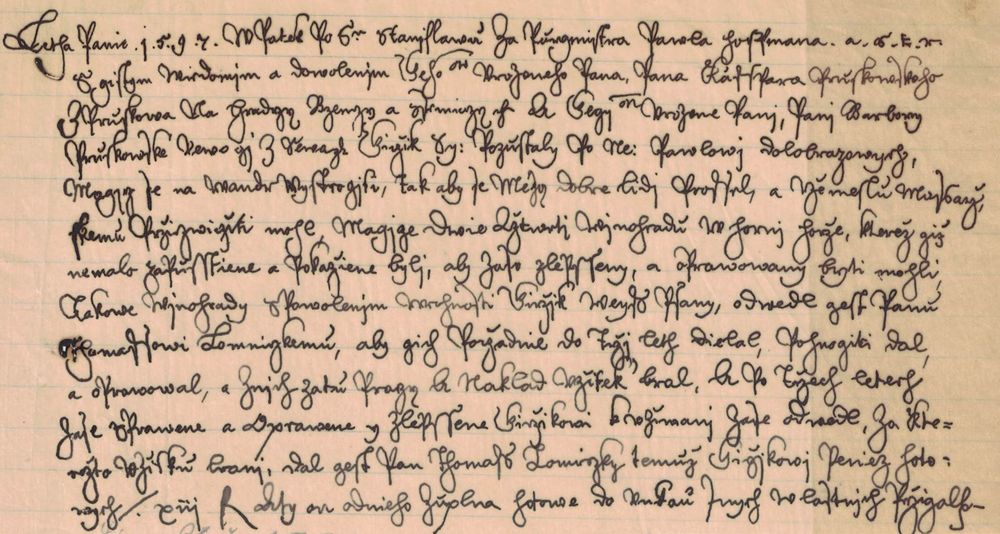 Letha Panie .1.5.9.7. W Patek Po Sm Stanislawu Za Purgmistra Pawla Hoffmana. a. G. E. R.
S gistym Wiedomim a dowolenim Geho Vrozeneho Pana, Pana Kasspara Pruskowskeho
Z Pruskowa Na Hradczy Bzenczy a Strniczy et k Gegj Vrozene Panj, Panj Barbory
Pruskowske Girzik Sy: Pozustaly Po Ne: Pawlowj dolobrazowych,
Magicz se na Wandr Wystrogiti, tak aby se Mezy dobre lidj Prossel, a Rzemeslu Massarz,
skemu Przizwicziti mohl, Magicze Dwie Cztwrti Winohradu W hornj horze, kterez giz
nemalo zapusstiene a Pokaziene bylj, aby zase zlepsseny, a oprawowany byti mohlj,
Takowe Winohrady S Powolenim Wrchnosti Girzik Weyss Psany, odwedl gest Panu
Thomassowi Lomniczkemu, aby gich Porzadnie do Trzi leth dielal, Pohnogiti dal,
a oprawowal, a Znich zatu Praczy k Naklad Vzitek bral, k Po Trzech letech
Zase Zprawene a Oprawene y Zlepssene Girzikowi k vzjwanj Zase odwedl, Za kte=
rezto Vzitku branj, dal gest Pan Thomass Lomniczky temuz Girzikowj Peniez hoto=
wych /. xiij f kdety on odnieho Zuplna hotowe do rukau Swych wlastnich Przigal